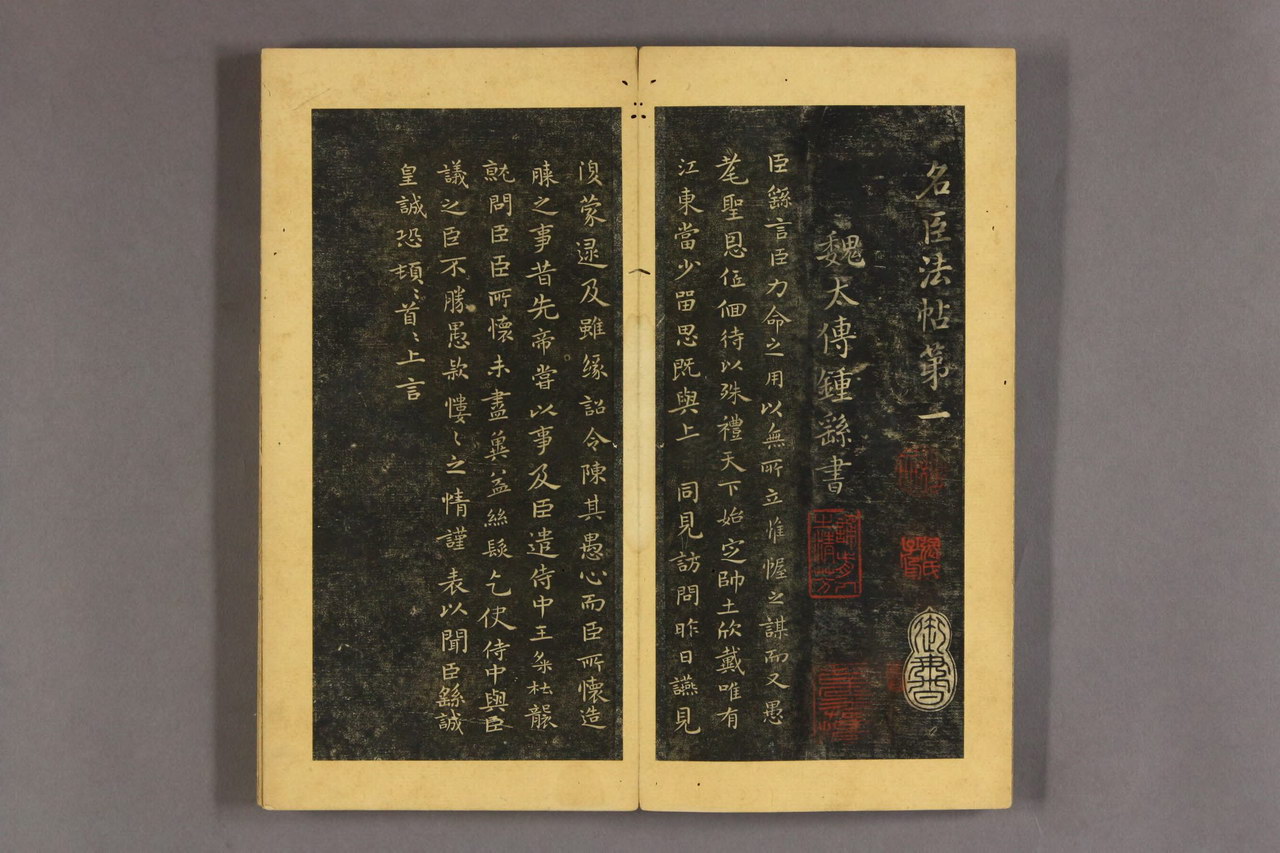 名臣法帖第一
魏太傅鍾繇書
臣繇言臣力命之用以無所立惟幄之謀而又愚
耄聖恩低佪待以殊禮天下始定帥土欣戴唯有
江東當少留思既與上 同見訪問昨日讌見
湏蒙逮及雖緣詔令陳其愚心而臣所懷造
膝之事昔先帝嘗以事及臣遣侍中王粲杜襲
就問臣臣所懷未盡兾益絲髮乞使侍中與臣
議之臣不勝愚款慺〻之情謹表以聞臣繇誠
皇誠恐頓〻首〻上言
御書